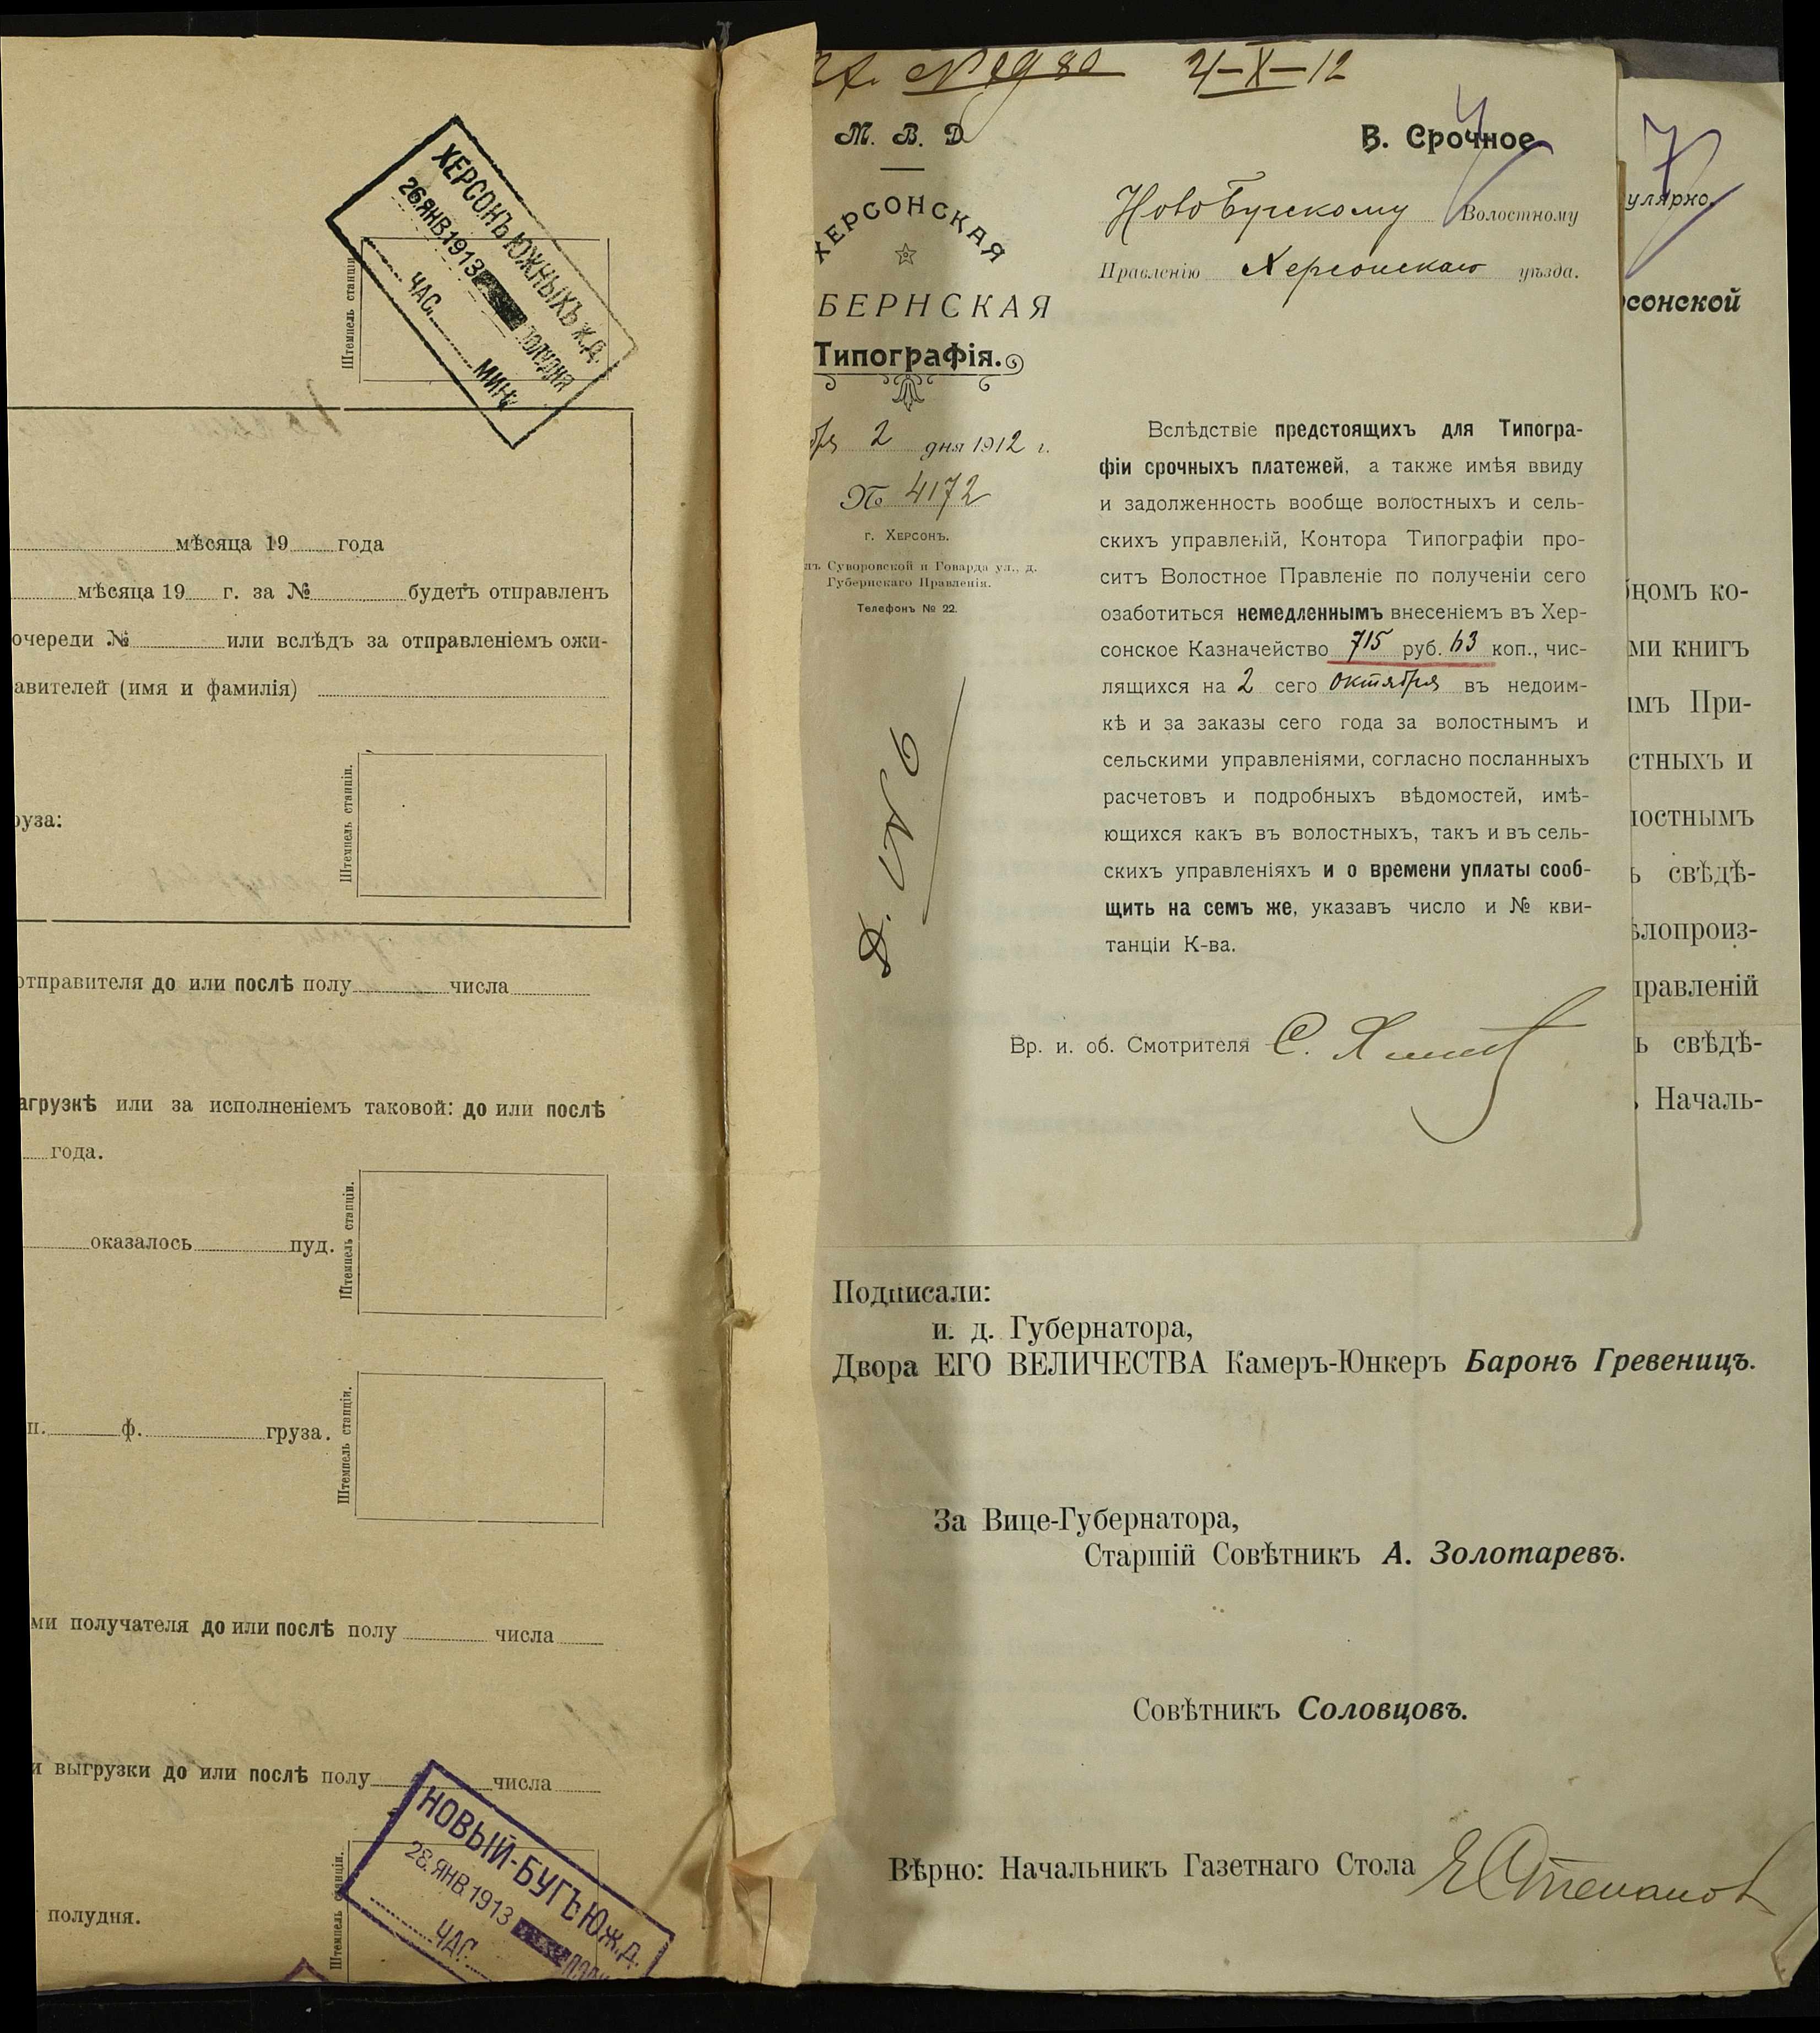 ХЕРСОНЪ ЮЖНЫХЪ Ж.Д.
26.ЯНВ.1913 ПОЛУДНЯ
ЧАС. МИН.
Штемпель станціи.
мѣсяца 19 года
мѣсяца 19 г. за № будетъ отправленъ
очереди № или вслѣдъ за отправленіемъ ожи-
авителей (имя и фамилія)
Штемпель станціи.
руза:
отправителя до или послѣ полу числа
агрузкѣ или за исполненіемъ таковой: до или послѣ
года.
Штемпель станціи.
оказалось пуд.
Штемпель станціи.
п. ф. груза.
ми получателя до или послѣ полу числа
и выгрузки до или послѣ полу числа
НОВЫЙ-БУГЪ Юж.Д.
28.ЯНВ.1913
ЧАС.
Штемпель станціи.
полудня.
4-X-12
М. В. Д.
ХЕРСОНСКАЯ
БЕРНСКАЯ
Типографія.
бря 2 дня 1912 г.
№ 4172
г. Херсонъ.
Суворовской и Говарда ул., д.
Губернскаго Правленія.
Телефонъ № 22.
Д. № 6
В. Срочное
НовоБугскому Волостному
Правленію Херсонскаго уѣзда.
Вслѣдствіе предстоящихъ для Типогра-
фіи срочныхъ платежей, а также имѣя ввиду
и задолженность вообще волостныхъ и сель-
скихъ управленій, Контора Типографіи про-
ситъ Волостное Правленіе по полученіи сего
озаботиться немедленнымъ внесеніемъ въ Хер-
сонское Казначейство 715 руб. 63 коп., чис-
лящихся на 2 сего октября въ недоим-
кѣ и за заказы сего года за волостнымъ и
сельскими управленіями, согласно посланныхъ
расчетовъ и подробныхъ вѣдомостей, имѣ-
ющихся какъ въ волостныхъ, такъ и въ сель-
скихъ управленіяхъ и о времени уплаты сооб-
щить на семъ же, указавъ число и № кви-
танціи К-ва.
Вр. и. об. Смотрителя С.
7
улярно.
рсонской
номъ ко-
ми книгъ
имъ При-
стныхъ и
лостнымъ
ъ свѣдѣ-
ѣлопроиз-
правленій
ъ свѣдѣ-
Началь-
Подписали:
и. д. Губернатора,
Двора ЕГО ВЕЛИЧЕСТВА Камеръ-Юнкеръ Баронъ Гревеницъ.
За Вице-Губернатора,
Старшій Совѣтникъ А. Золотаревъ.
Совѣтникъ Соловцовъ.
Вѣрно: Начальникъ Газетнаго Стола Степанов